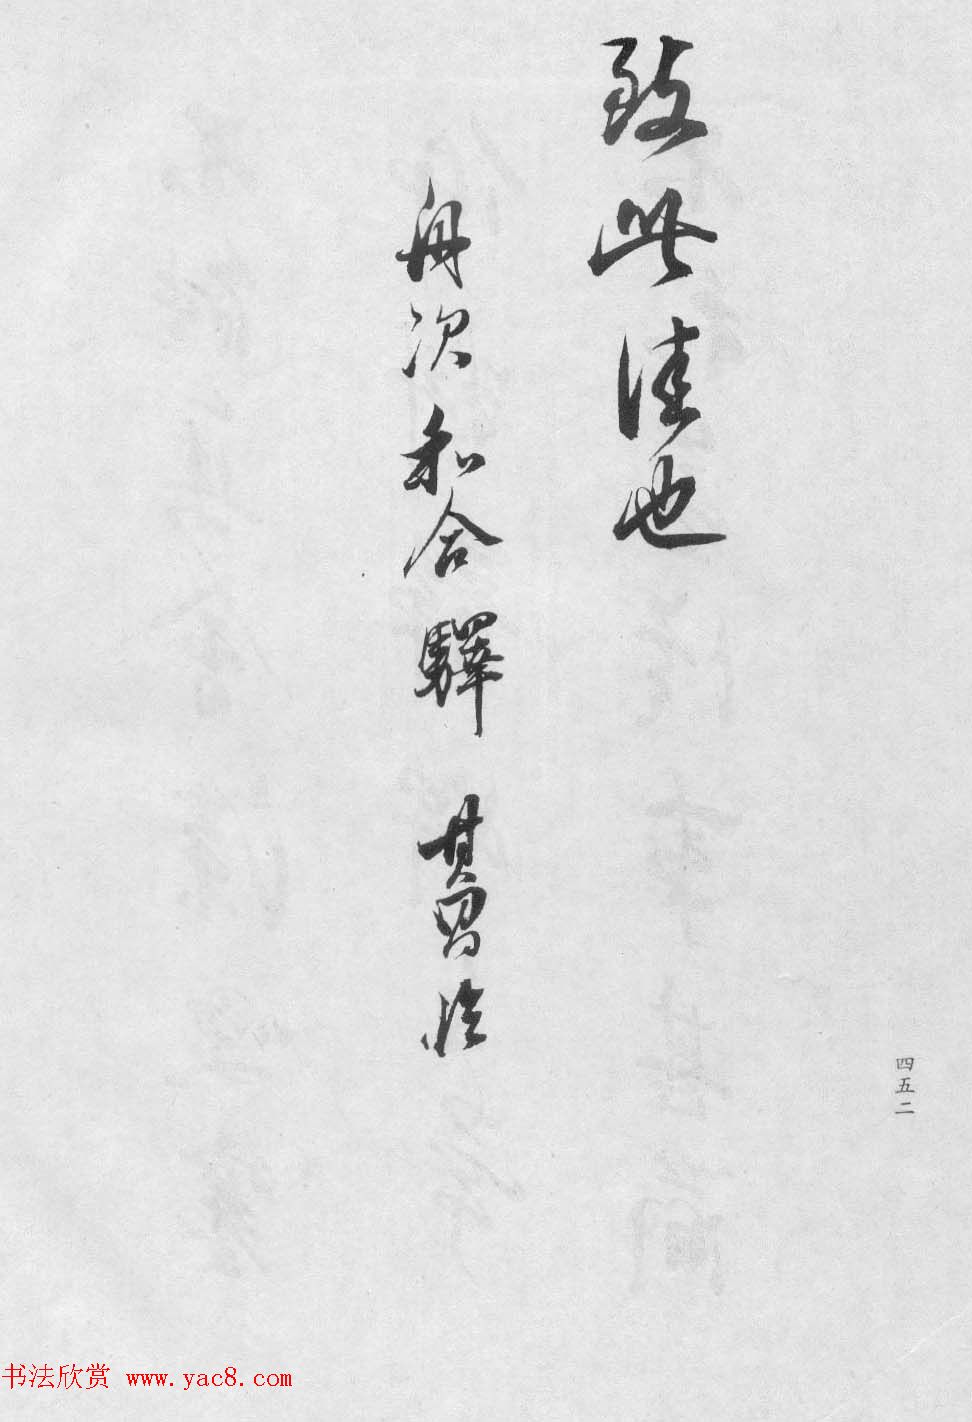 致此佳也
舟次和合驛 其昌臨
四五二
书法欣赏 www.yac8.com